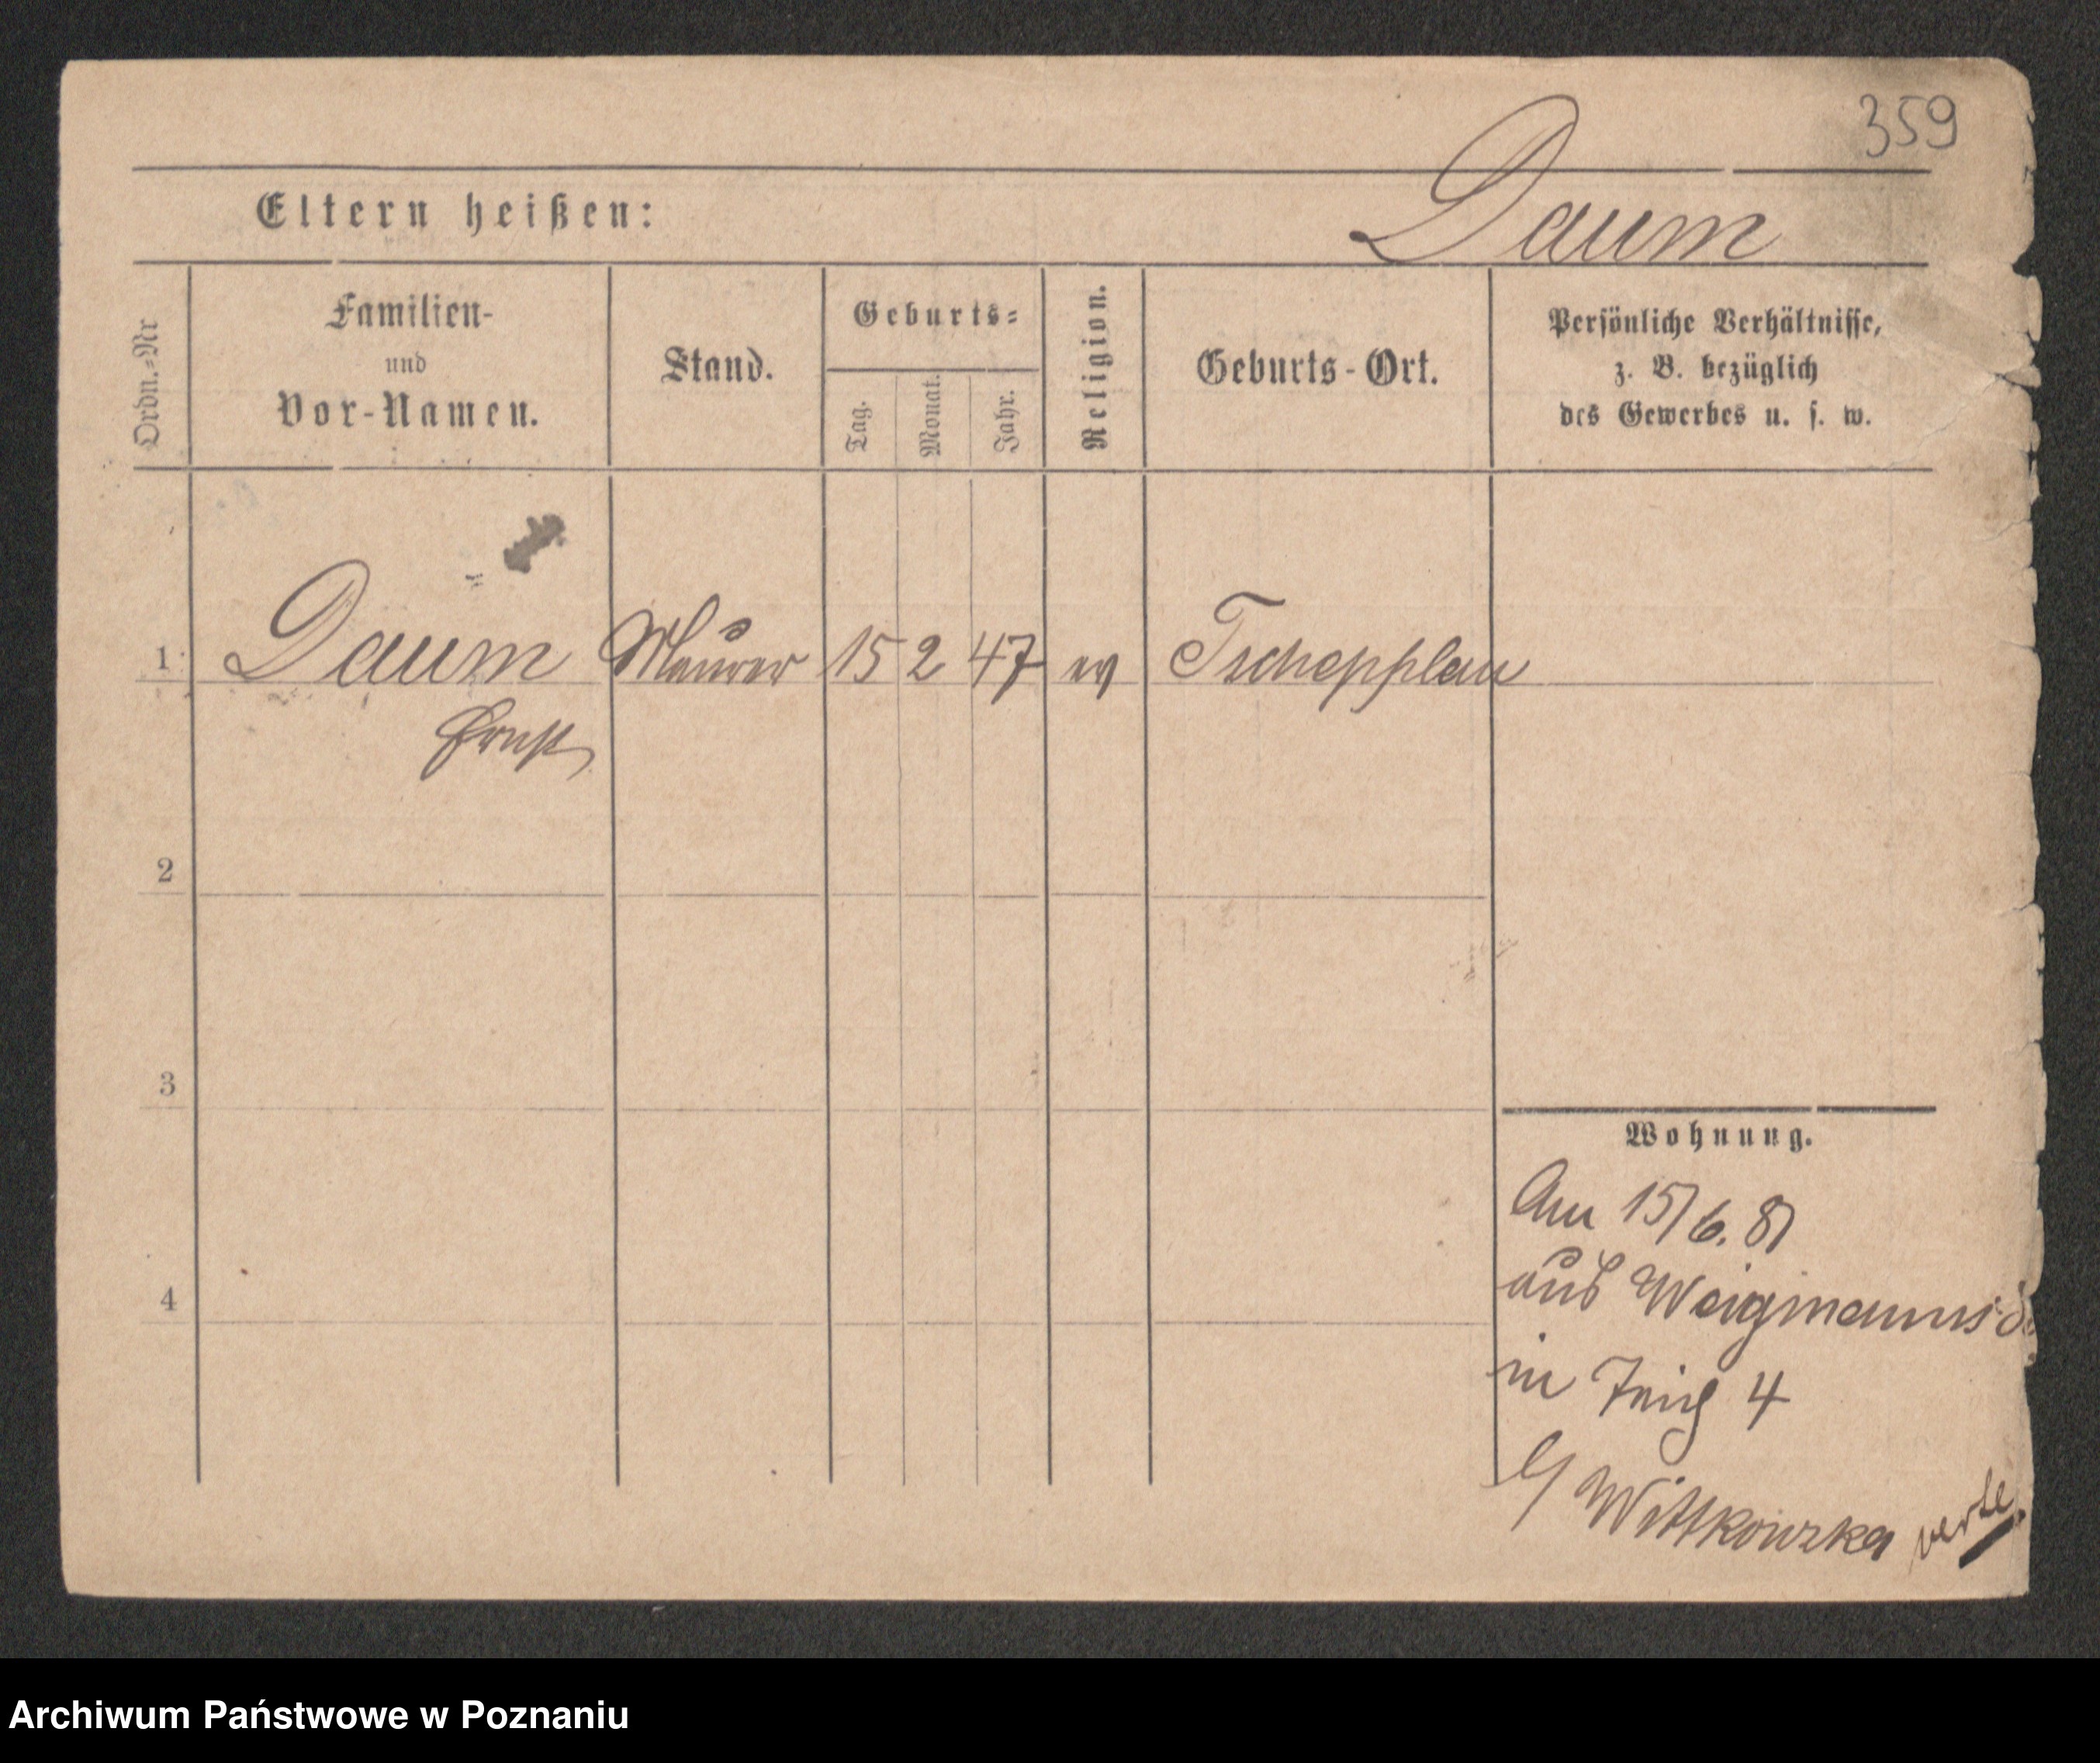 359
Eltern heißen:
Daum
Ordn.=Nr
Familien-
und
Vor-Namen.
Stand.
Geburts=
Tag.
Monat.
Jahr.
Religion.
Geburts-Ort.
Persönliche Verhältnisse,
z. B. bezüglich
des Gewerbes u. s. w.
1 Daum Maurer 15 2 47 ev Tschepplau
Ernst
2
3
Wohnung.
Am 15/6. 81
4
aus Weigmanns
in 4
b/ Wittkowska
verte.
Archiwum Państwowe w Poznaniu